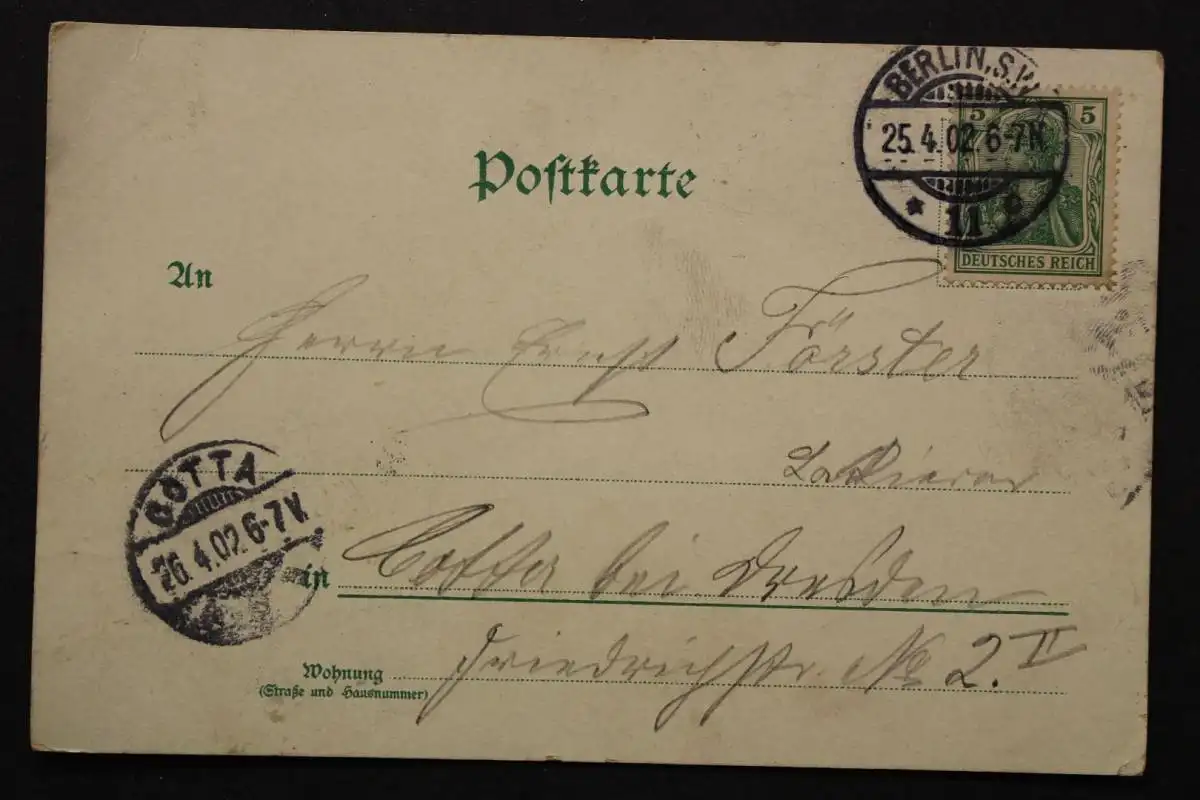 BERLIN, S.W.
25.4.02.6-7N.
* 11
5 5
DEUTSCHES REICH
Postkarte
An
Herrn Ernst Förster
Lackierer
COTTA
26.4.02.6-7V.
in Cotta bei Dresden
Wohnung Friedrichstr. No 2. II
(Straße und Hausnummer)